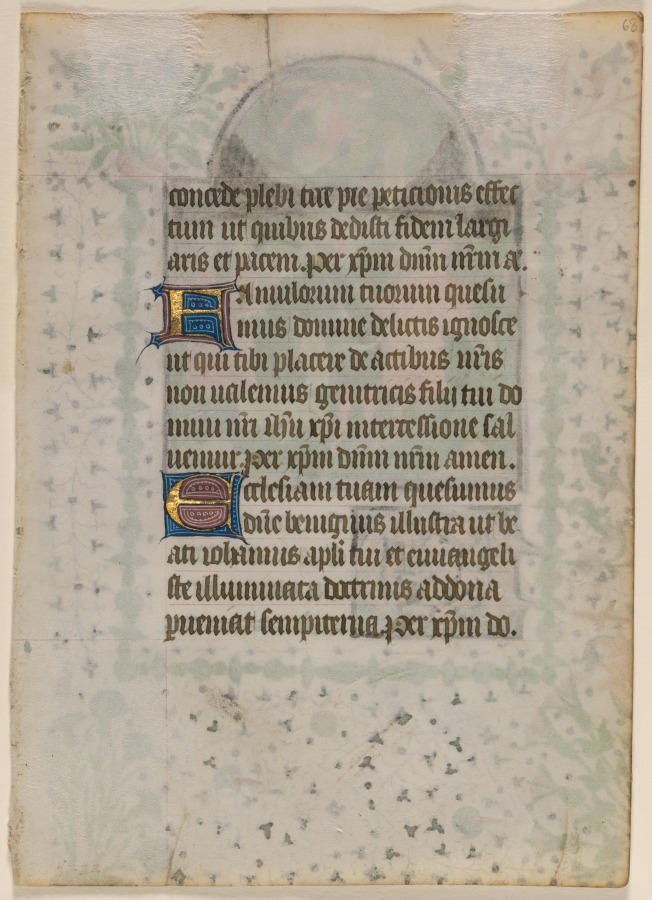 68
concede plebi tue pie peticionis effec
tum ut quibus dedisti fidem largi
aris et pacem. per xp̄m dn̄m nr̄m ac.
Famulorum tuorum quesu
mus domine delictis ignosce
ut qui tibi placere de actibus nr̄is
non ualemus genitricis filij tui do
mini nr̄i ih̄u xp̄i intercessione sal
uemur. per xp̄m dn̄m nr̄m amen.
Ecclesiam tuam quesumus
dn̄e benignus illustra ut be
ati iohannis apl̄i tui et euuangeli
ste illuminata doctrinis ad dona
p̱ueniat sempiterna. per xp̄m do.